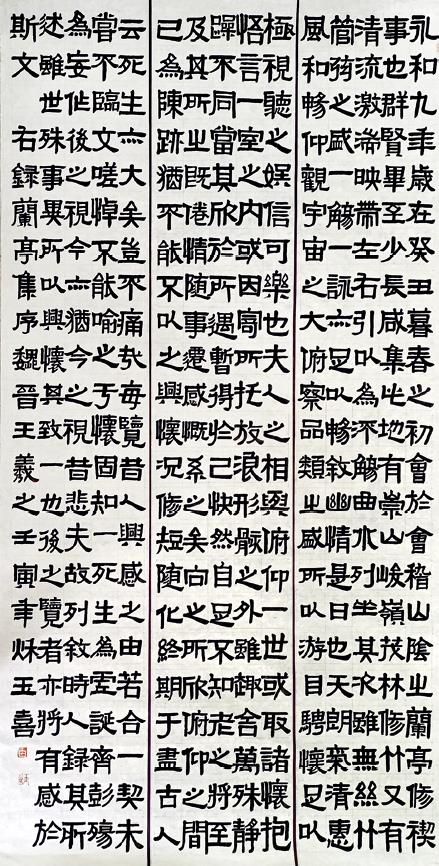 永和九年歲在癸丑暮春之初會於會稽山陰之蘭亭修禊
事也群賢畢至少長咸集此地有崇山峻嶺茂林修竹又有
清流激湍映帶左右引以為流觴曲水列坐其次雖無絲竹
管弦之盛一觴一詠亦足以暢敘幽情是日也天朗氣清惠
風和暢仰觀宇宙之大俯察品類之盛所以游目騁懷足以
極視聽之娛信可樂也夫人之相與俯仰一世或取諸懷抱
悟言一室之內或因寄所托放浪形骸之外雖趣舍萬殊靜
躁不同當其欣於所遇暫得於己快然自足不知老之將至
及其所之既倦情隨事遷感慨系之矣向之所欣俯仰之間
已為陳跡猶不能不以之興懷況修短隨化終期于盡古人
云死生亦大矣豈不痛哉每覽昔人興感之由若合一契未
嘗不臨文嗟悼不能喻之于懷固知一死生為虛誕齊彭殤
為妄作後之視今亦猶今之視昔悲夫故列敘時人錄其所
述雖世殊事異所以興懷其致一也後之覽者亦將有感於
斯文 右錄蘭亭集序魏晉王羲之壬寅年秋玉喜